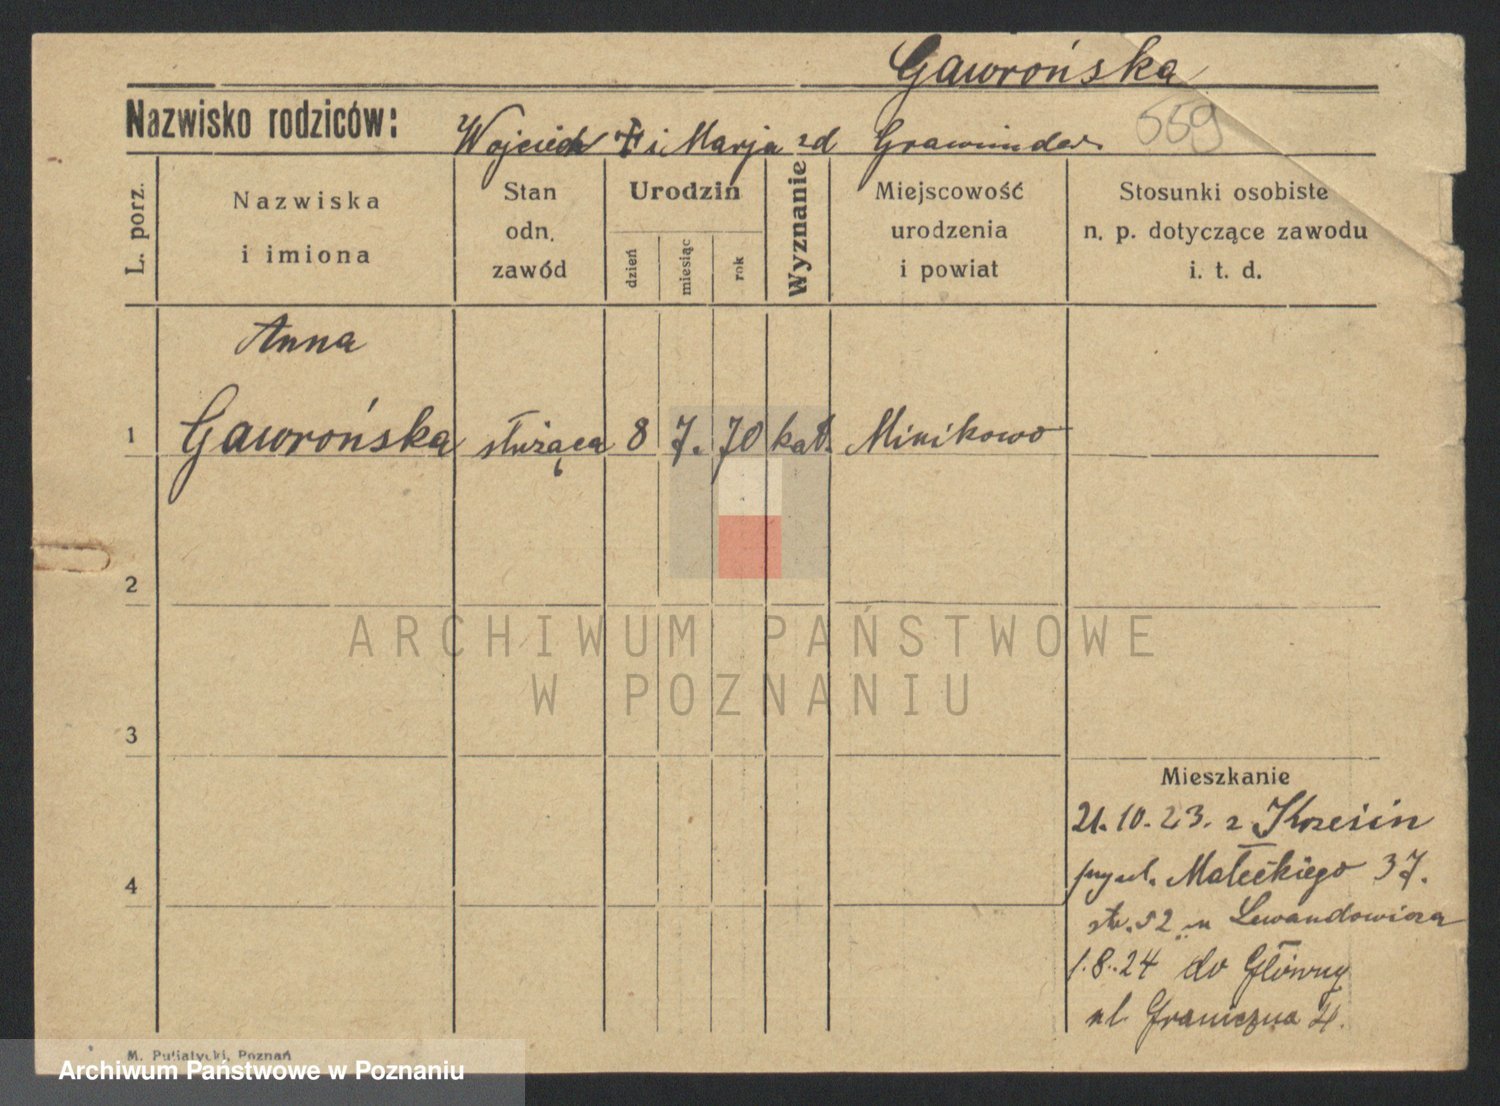 Gawrońska
559
Nazwisko rodziców: Wojciech i Marja zd
L. porz.
Nazwiska i imiona
Stan odn. zawód
Urodzin
dzień
miesiąc
rok
Wyznanie
Miejscowość urodzenia i powiat
Stosunki osobiste n. p. dotyczące zawodu i. t. d.
Anna
1 Gawrońska służąca 8 7. 70 kat. Minikowo
2
ARCHIWUM PAŃSTWOWE
W POZNANIU
3
Mieszkanie
21.10.23. z Krzesin
4
Małeckiego 37.
str. 52 u Lewandowicza
1.8.24 do Główny
ul Graniczna 4.
M. Putiatycki, Poznań
Archiwum Państwowe w Poznaniu